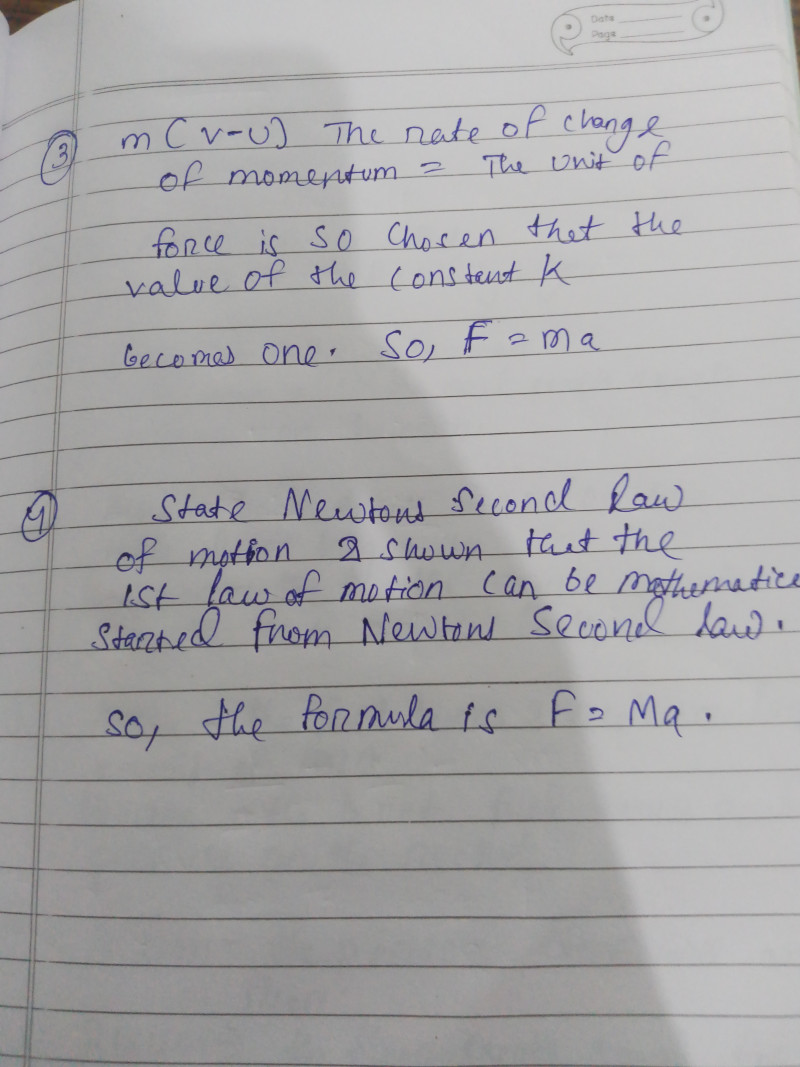 Date
Page
③ m (v-u) The rate of change
of momentum = The unit of
force is so chosen thet the
value of the constent K
becomes one. So, F = ma
④ State Newtons Second law
of motion & shown that the
1st law of motion can be mathematice
Started from Newtons Second law.
so, the formula is F = Ma.